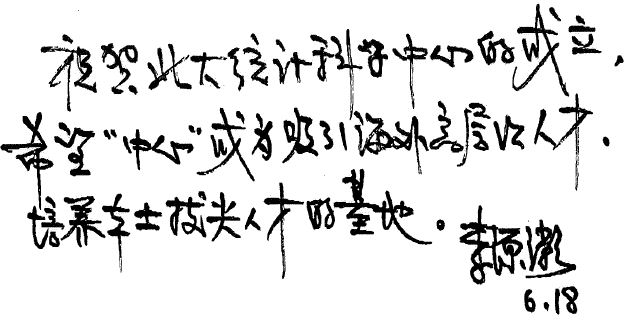 祝贺北大统计科学中心的成立，
希望“中心”成为吸引海外高层次人才，
培养本土拔尖人才的基地。
李源潮
6.18